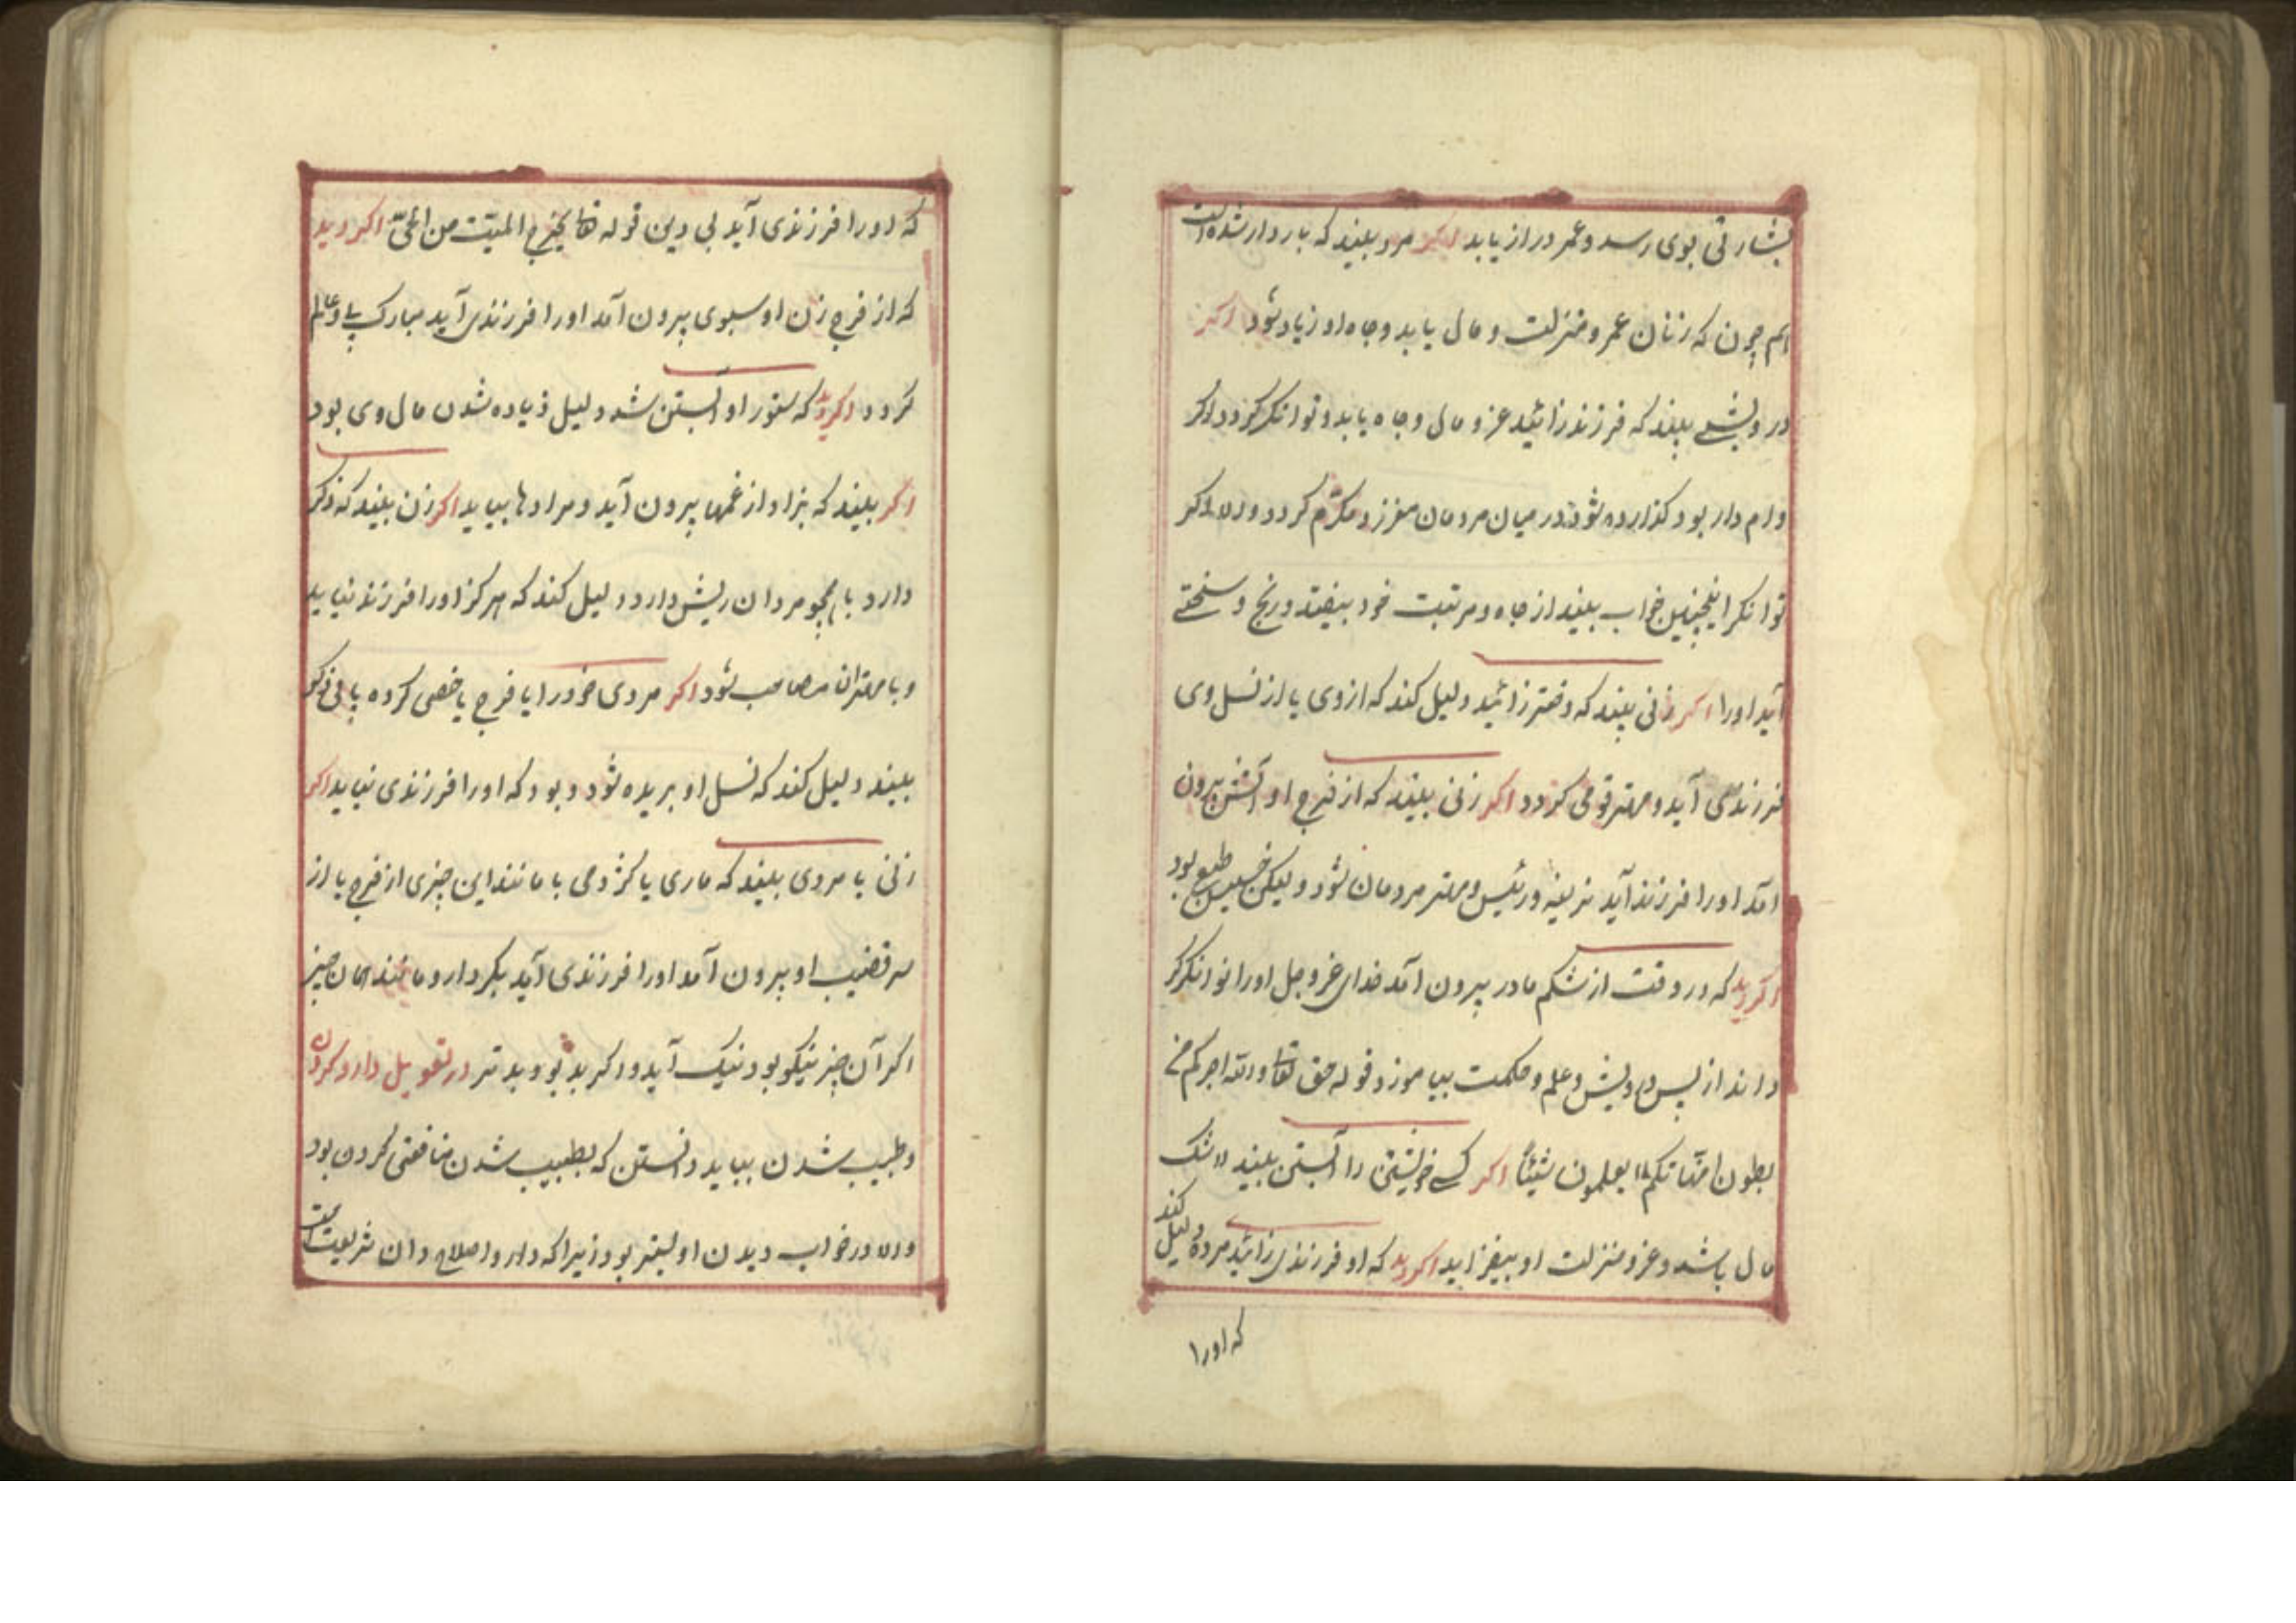 بشارتی بوی رسد و عمر دراز یابد اکر مرد بیند که باردار شده است
هم چون که زنان عمر و منزلت و مال یابد و جاه او زیاد شود اکر
درویشی بیند که فرزند زائید عز و مال و جاه یابد و توانکر کردد و اکر
وام دار بود کذارده شود در میان مردمان معزز و مکرّم کردد و اکر
توانکر اینچنین خواب بیند از جاه و مرتبت خود بیفتد و رنج و سختے
آید او را اکر زنی بیند که دختر زائید دلیل کند که از وی یا از نسل وی
فرزندی آید و مهتر قومی کردد اکر زنی بیند که از فرج او آتش بیرون
آمد او را فرزند آید نرینه و رئیس و مهتر مردمان شود و لیکن خسیس طبع بود
اکر دید که در وقت از شکم مادر بیرون آمد خدای عز و جل او را توانکر کر
داند از پس درویشی و علم و حکمت بیاموزد قوله حق تعا و الله اخرجکم من
بطون امّهاتکم لا یعلمون شیئاً اکر کسے خویشتن را آبستن بیند لاشک
مال باشد و عز و منزلت او بیفزاید اکر دید که او فرزندی زائید مرده دلیل کند
که او را
که او را فرزندی آید بی دین قوله تعا یخرج المیّت من الحیّ اکر دید
که از فرج زن او سبوی بیرون آمد او را فرزندی آید مبارک پے و عالم
کردد اکر دید که ستور او آبستن شد دلیل زیاده شدن مال وی بود
اکر بیند که بزاد از غمها بیرون آید و مرادها بیابد اکر زن بیند که ذکر
دارد یا همچو مردان ریش دارد دلیل کند که هرکز او را فرزند نیاید
و با مهتران مصاحب شود اکر مردی خود را با فرج یا خصی کرده یا بی ذکر
بیند دلیل کند که نسل او بریده شود و بود که او را فرزندی نیاید اکر
زنی یا مردی بیند که ماری یا کژدمی یا مانند این چیزی از فرج یا از
سر قضیب او بیرون آمد او را فرزندی آید بکردار و مانند همان چیز
اکر آن چیز نیکو بود نیک آید و اکر بد بود بدتر در تعویل دارو کردن
و طبیب شدن بباید دانستن که بطبیب شدن منافعتی کردن بود
و دارو در خواب دیدن او بهتر بود زیرا که دارو اصلاح دان شریعت است